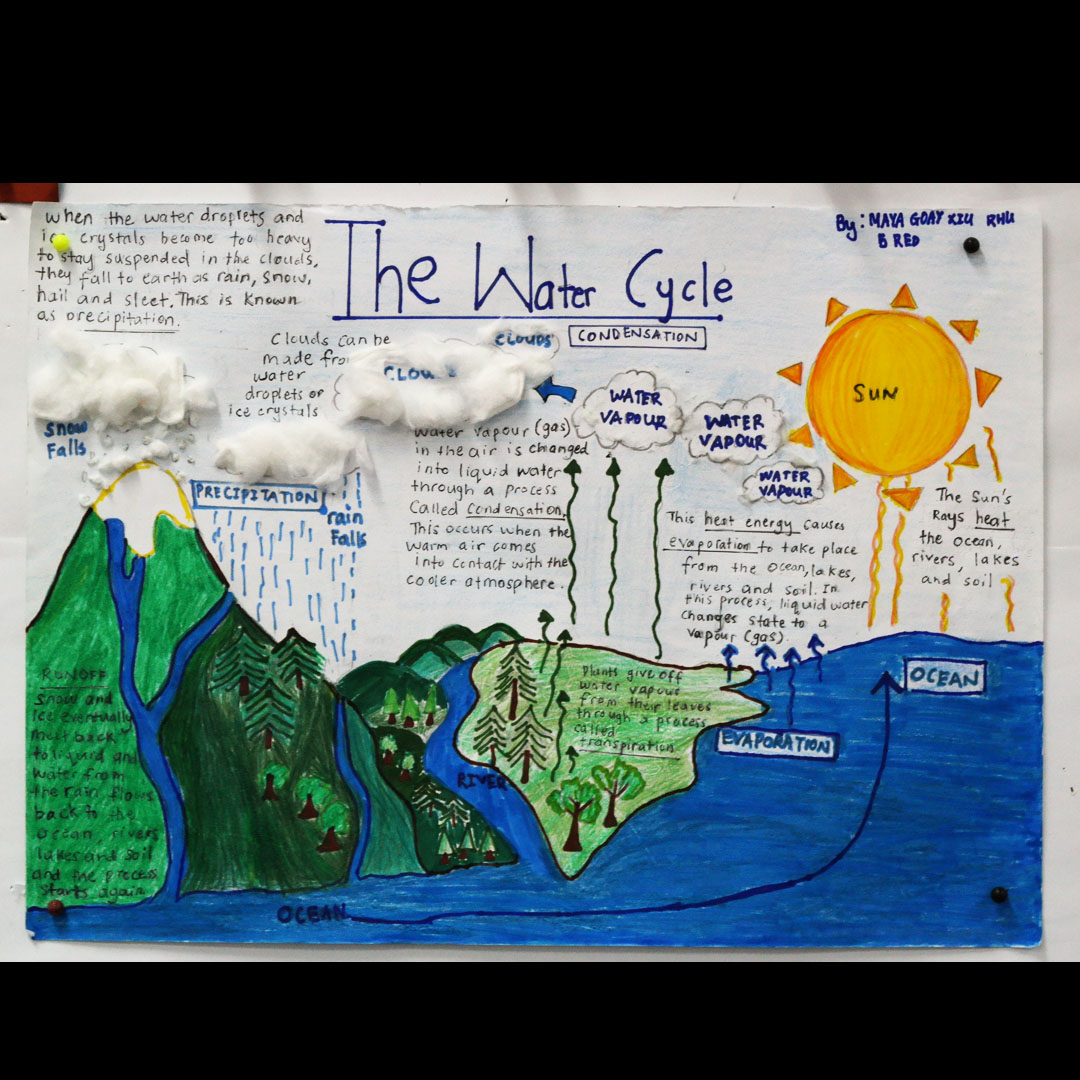 when the water droplets and
ice crystals become too heavy
to stay suspended in the clouds,
they fall to earth as rain, snow,
hail and sleet. This is known
as precipitation.
The Water Cycle
By: MAYA GOAY XIU RHU
B RED
Clouds can be
made from
water
droplets or
ice crystals
CLOUDS
CLOUDS
CONDENSATION
WATER
VAPOUR
WATER
VAPOUR
WATER
VAPOUR
SUN
Snow
Falls
PRECIPITATION
rain
Falls
Water vapour (gas)
in the air is changed
into liquid water
through a process
Called condensation.
This occurs when the
warm air comes
into contact with the
cooler atmosphere.
This heat energy causes
evaporation to take place
from the ocean, lakes,
rivers and soil. In
this process, liquid water
changes state to a
vapour (gas).
The Sun's
Rays heat
the ocean,
rivers, lakes
and soil
RUNOFF
Snow and
ice eventually
melt back
to liquid and
water from
the rain flows
back to the
ocean, rivers
lakes and soil
and the process
starts again
Plants give off
water vapour
from their leaves
through a process
called
transpiration
RIVER
EVAPORATION
OCEAN
OCEAN